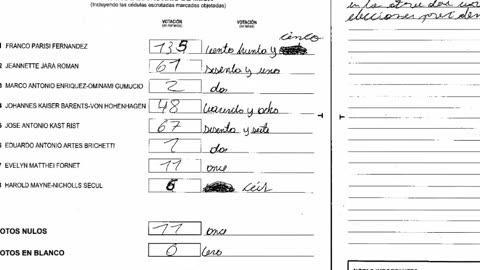 (Incluyendo las cédulas escrutadas marcadas objetadas)
VOTACIÓN
(en números)
VOTACIÓN
(en letras)
cinco
FRANCO PARISI FERNANDEZ 135 ciento treinta y
JEANNETTE JARA ROMAN 61 sesenta y uno
3 MARCO ANTONIO ENRIQUEZ-OMINAMI GUMUCIO 2 dos
JOHANNES KAISER BARENTS-VON HOHENHAGEN 48 cuarenta y ocho
JOSE ANTONIO KAST RIST 67 sesenta y siete
6 EDUARDO ANTONIO ARTES BRICHETTI dos
7 EVELYN MATTHEI FORNET 11 once
HAROLD MAYNE-NICHOLLS SECUL 6 ceis
OTOS NULOS 11 once
OTOS EN BLANCO 0 cero
elecciones